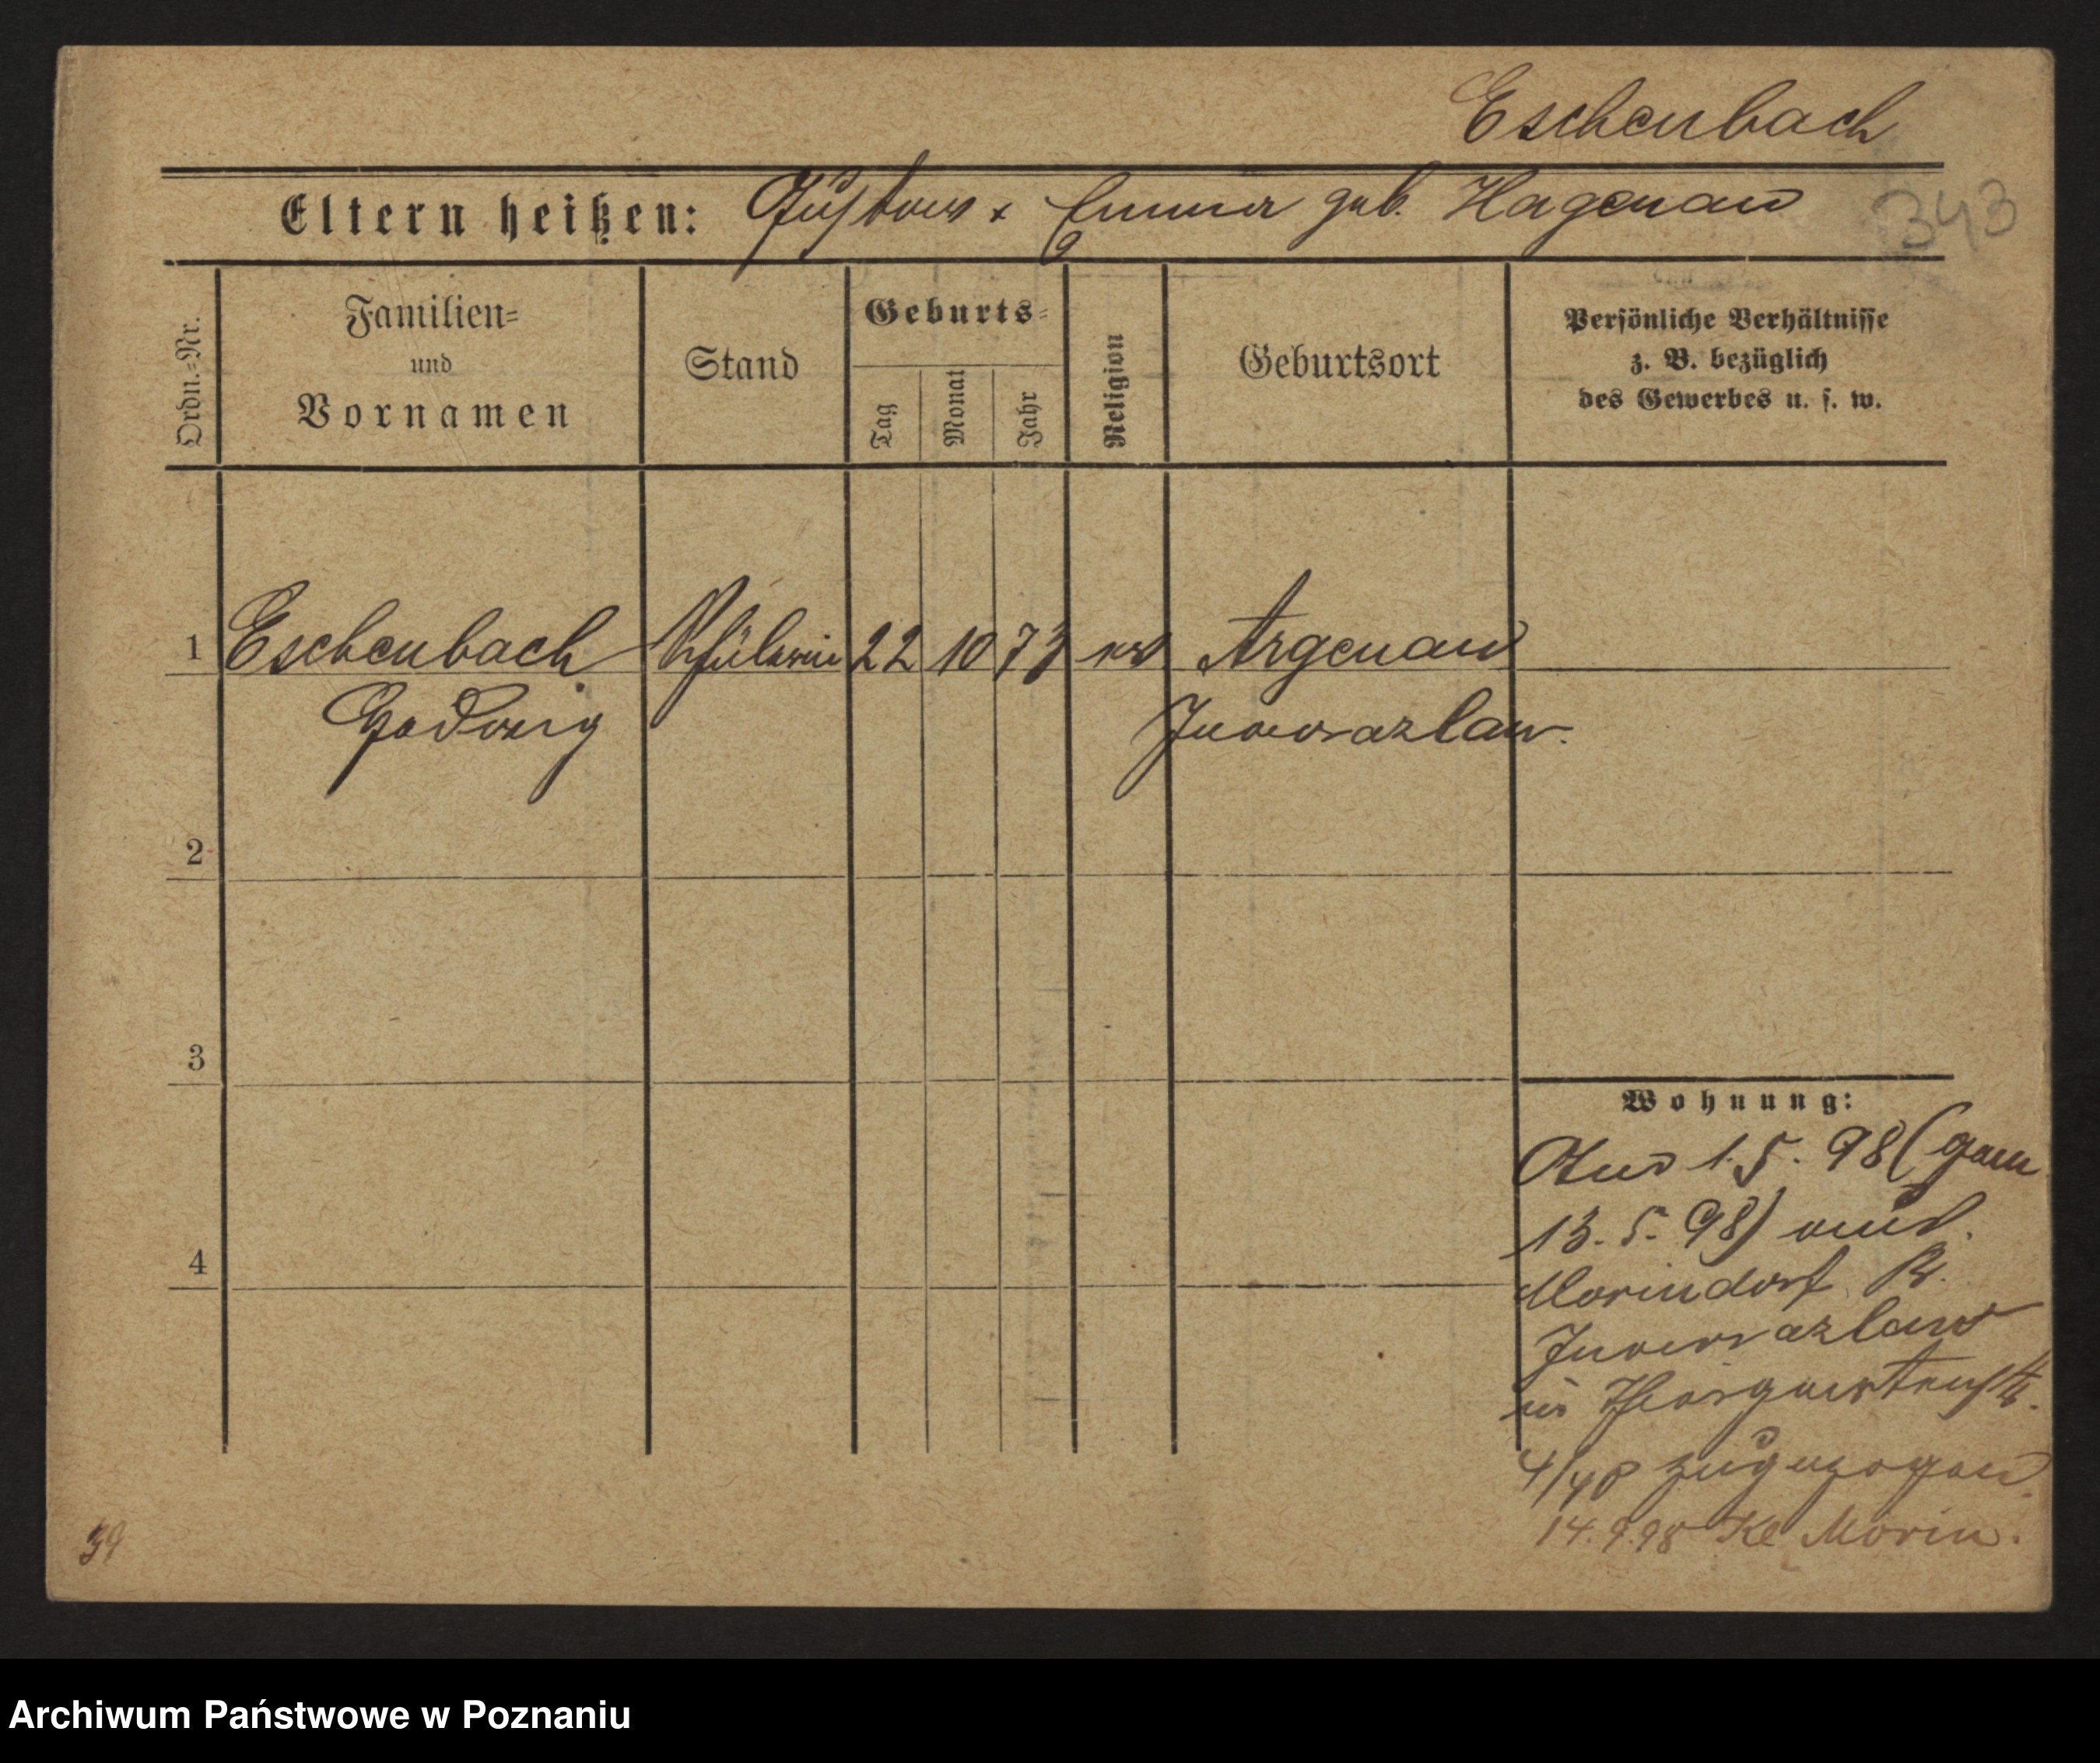 Eschenbach
343
Eltern heißen: Gustav + Emma geb. Hagenau
Ordn.=Nr.
Familien=
und
Vornamen
Stand
Geburts=
Tag
Monat
Jahr
Religion
Geburtsort
Persönliche Verhältnisse
z. B. bezüglich
des Gewerbes u. s. w.
1 Eschenbach Schülerin 22 10 73 ev Argenau
Hedwig Inowrazlaw.
2
3
4
Wohnung:
1.5.98 (gem
13.5.98) aus
Morindorf Kr.
Inowrazlaw
in
zugezogen
14.9.98 Kl Morin.
39
Archiwum Państwowe w Poznaniu